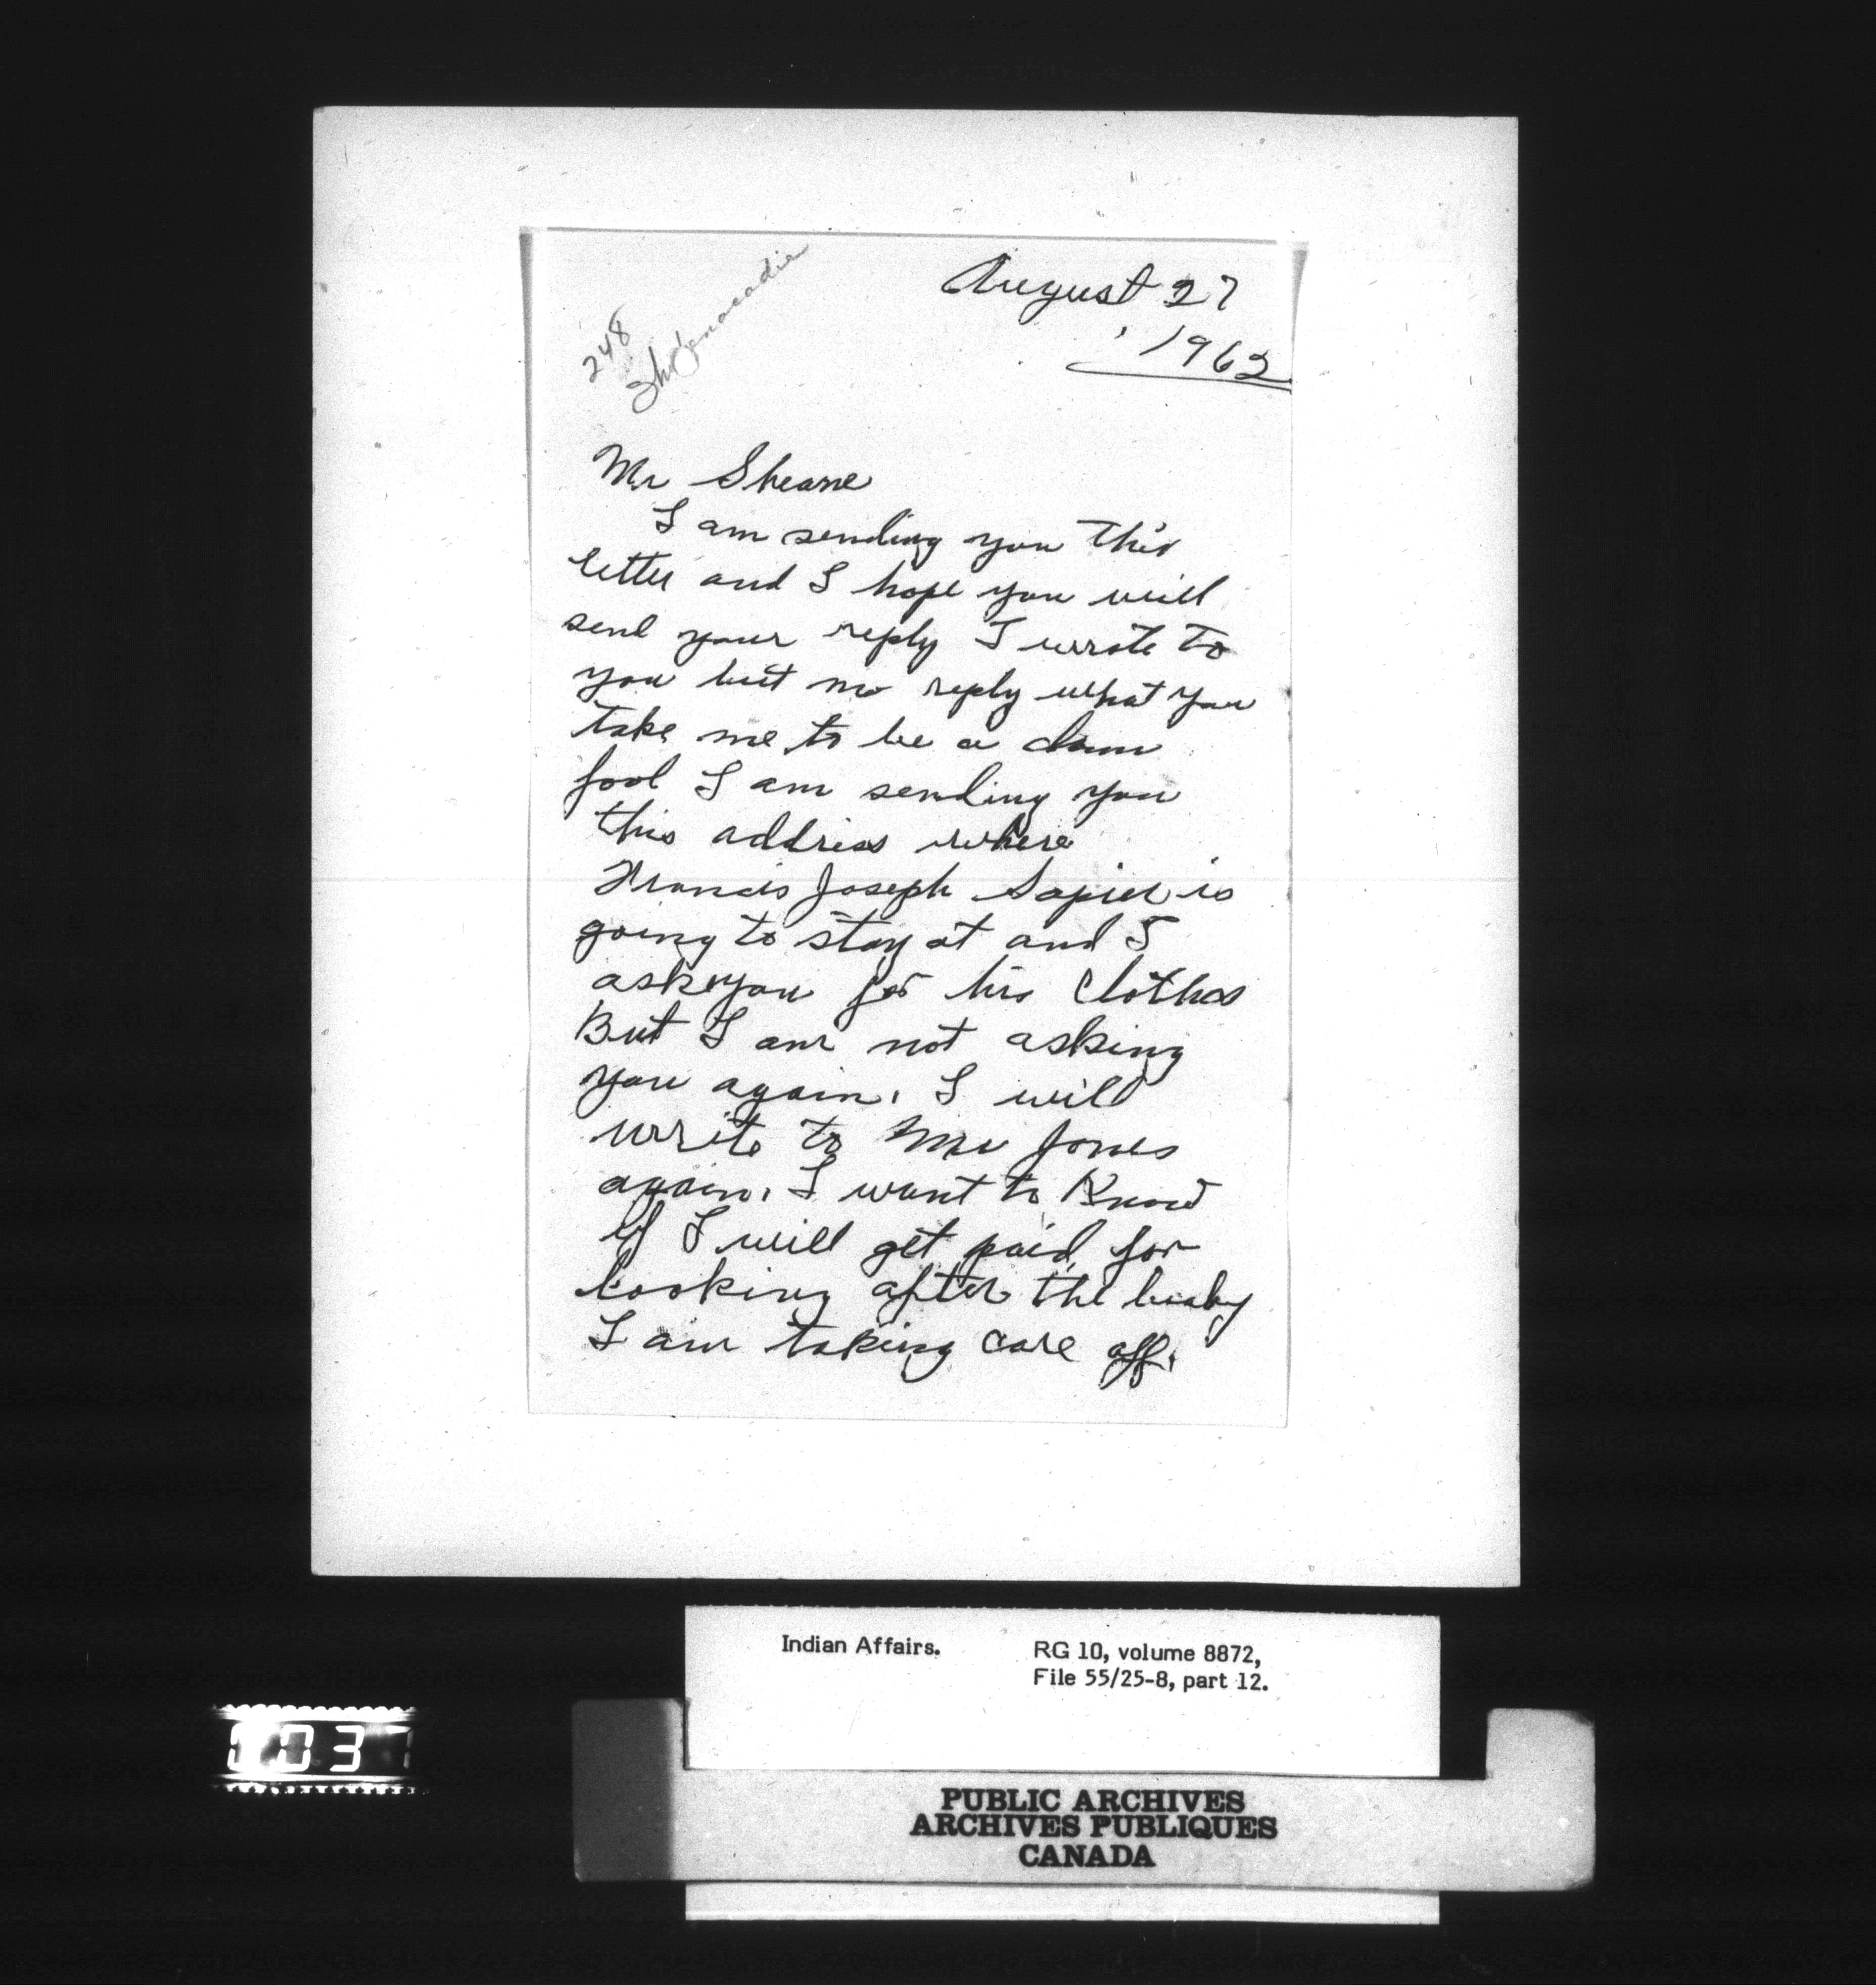 248
Shubenacadie
August 27
, 1962
Mr Sheane
I am sending you this
letter and I hope you will
send your reply I wrote to
you but no reply what you
take me to be a dam
fool I am sending you
this address where
Francis Joseph Sapier is
going to stay at and I
ask you for his clothes
But I am not asking
you again. I will
write to Mr Jones
again. I want to Know
if I will get paid for
looking after the baby
I am taking care off.
Indian Affairs.
RG 10, volume 8872,
File 55/25-8, part 12.
PUBLIC ARCHIVES
ARCHIVES PUBLIQUES
CANADA